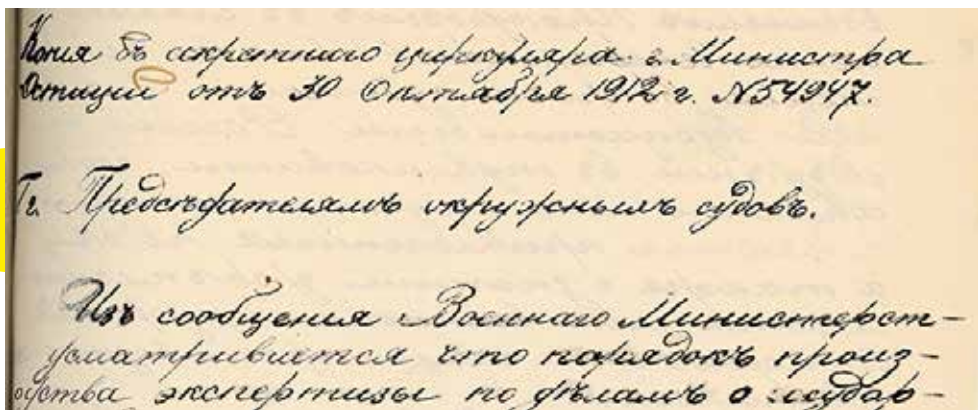 Копия съ секретнаго циркуляра г. Министра
Юстиціи отъ 30 Октября 1912 г. №54947.
Гг. Предсѣдателямъ окружныхъ судовъ.
Изъ сообщенія Военнаго Министерст-
усматривается что порядокъ произ-
одства экспертизы по дѣламъ о государ-